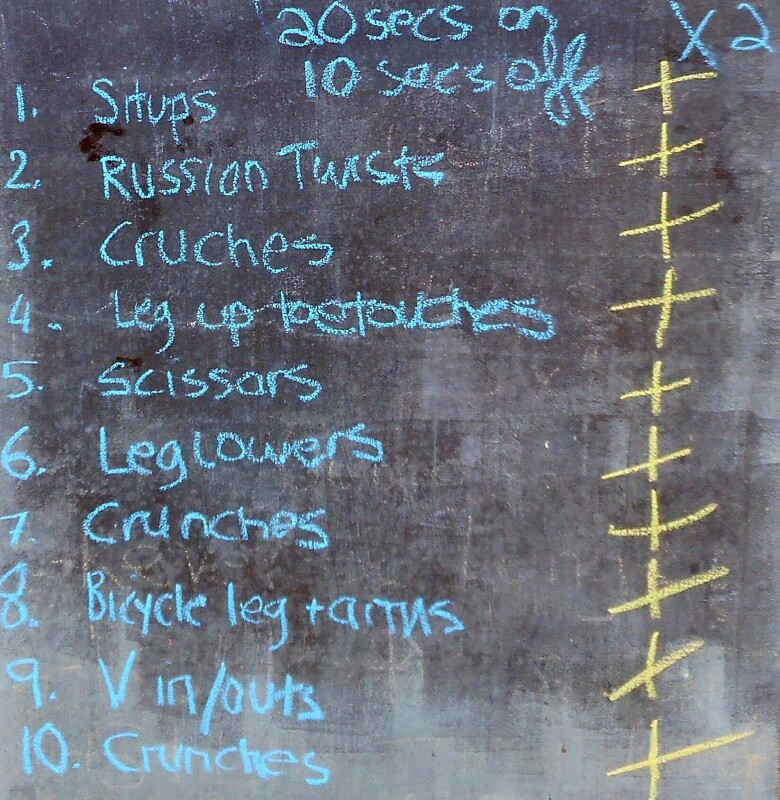 20 secs on X2
10 secs off
1. Situps
2. Russian Twists
3. Cruches
4. Leg up toetouches
5. Scissors
6. Leg lowers
7. Crunches
8. Bicycle leg + arms
9. V in/outs
10. Crunches